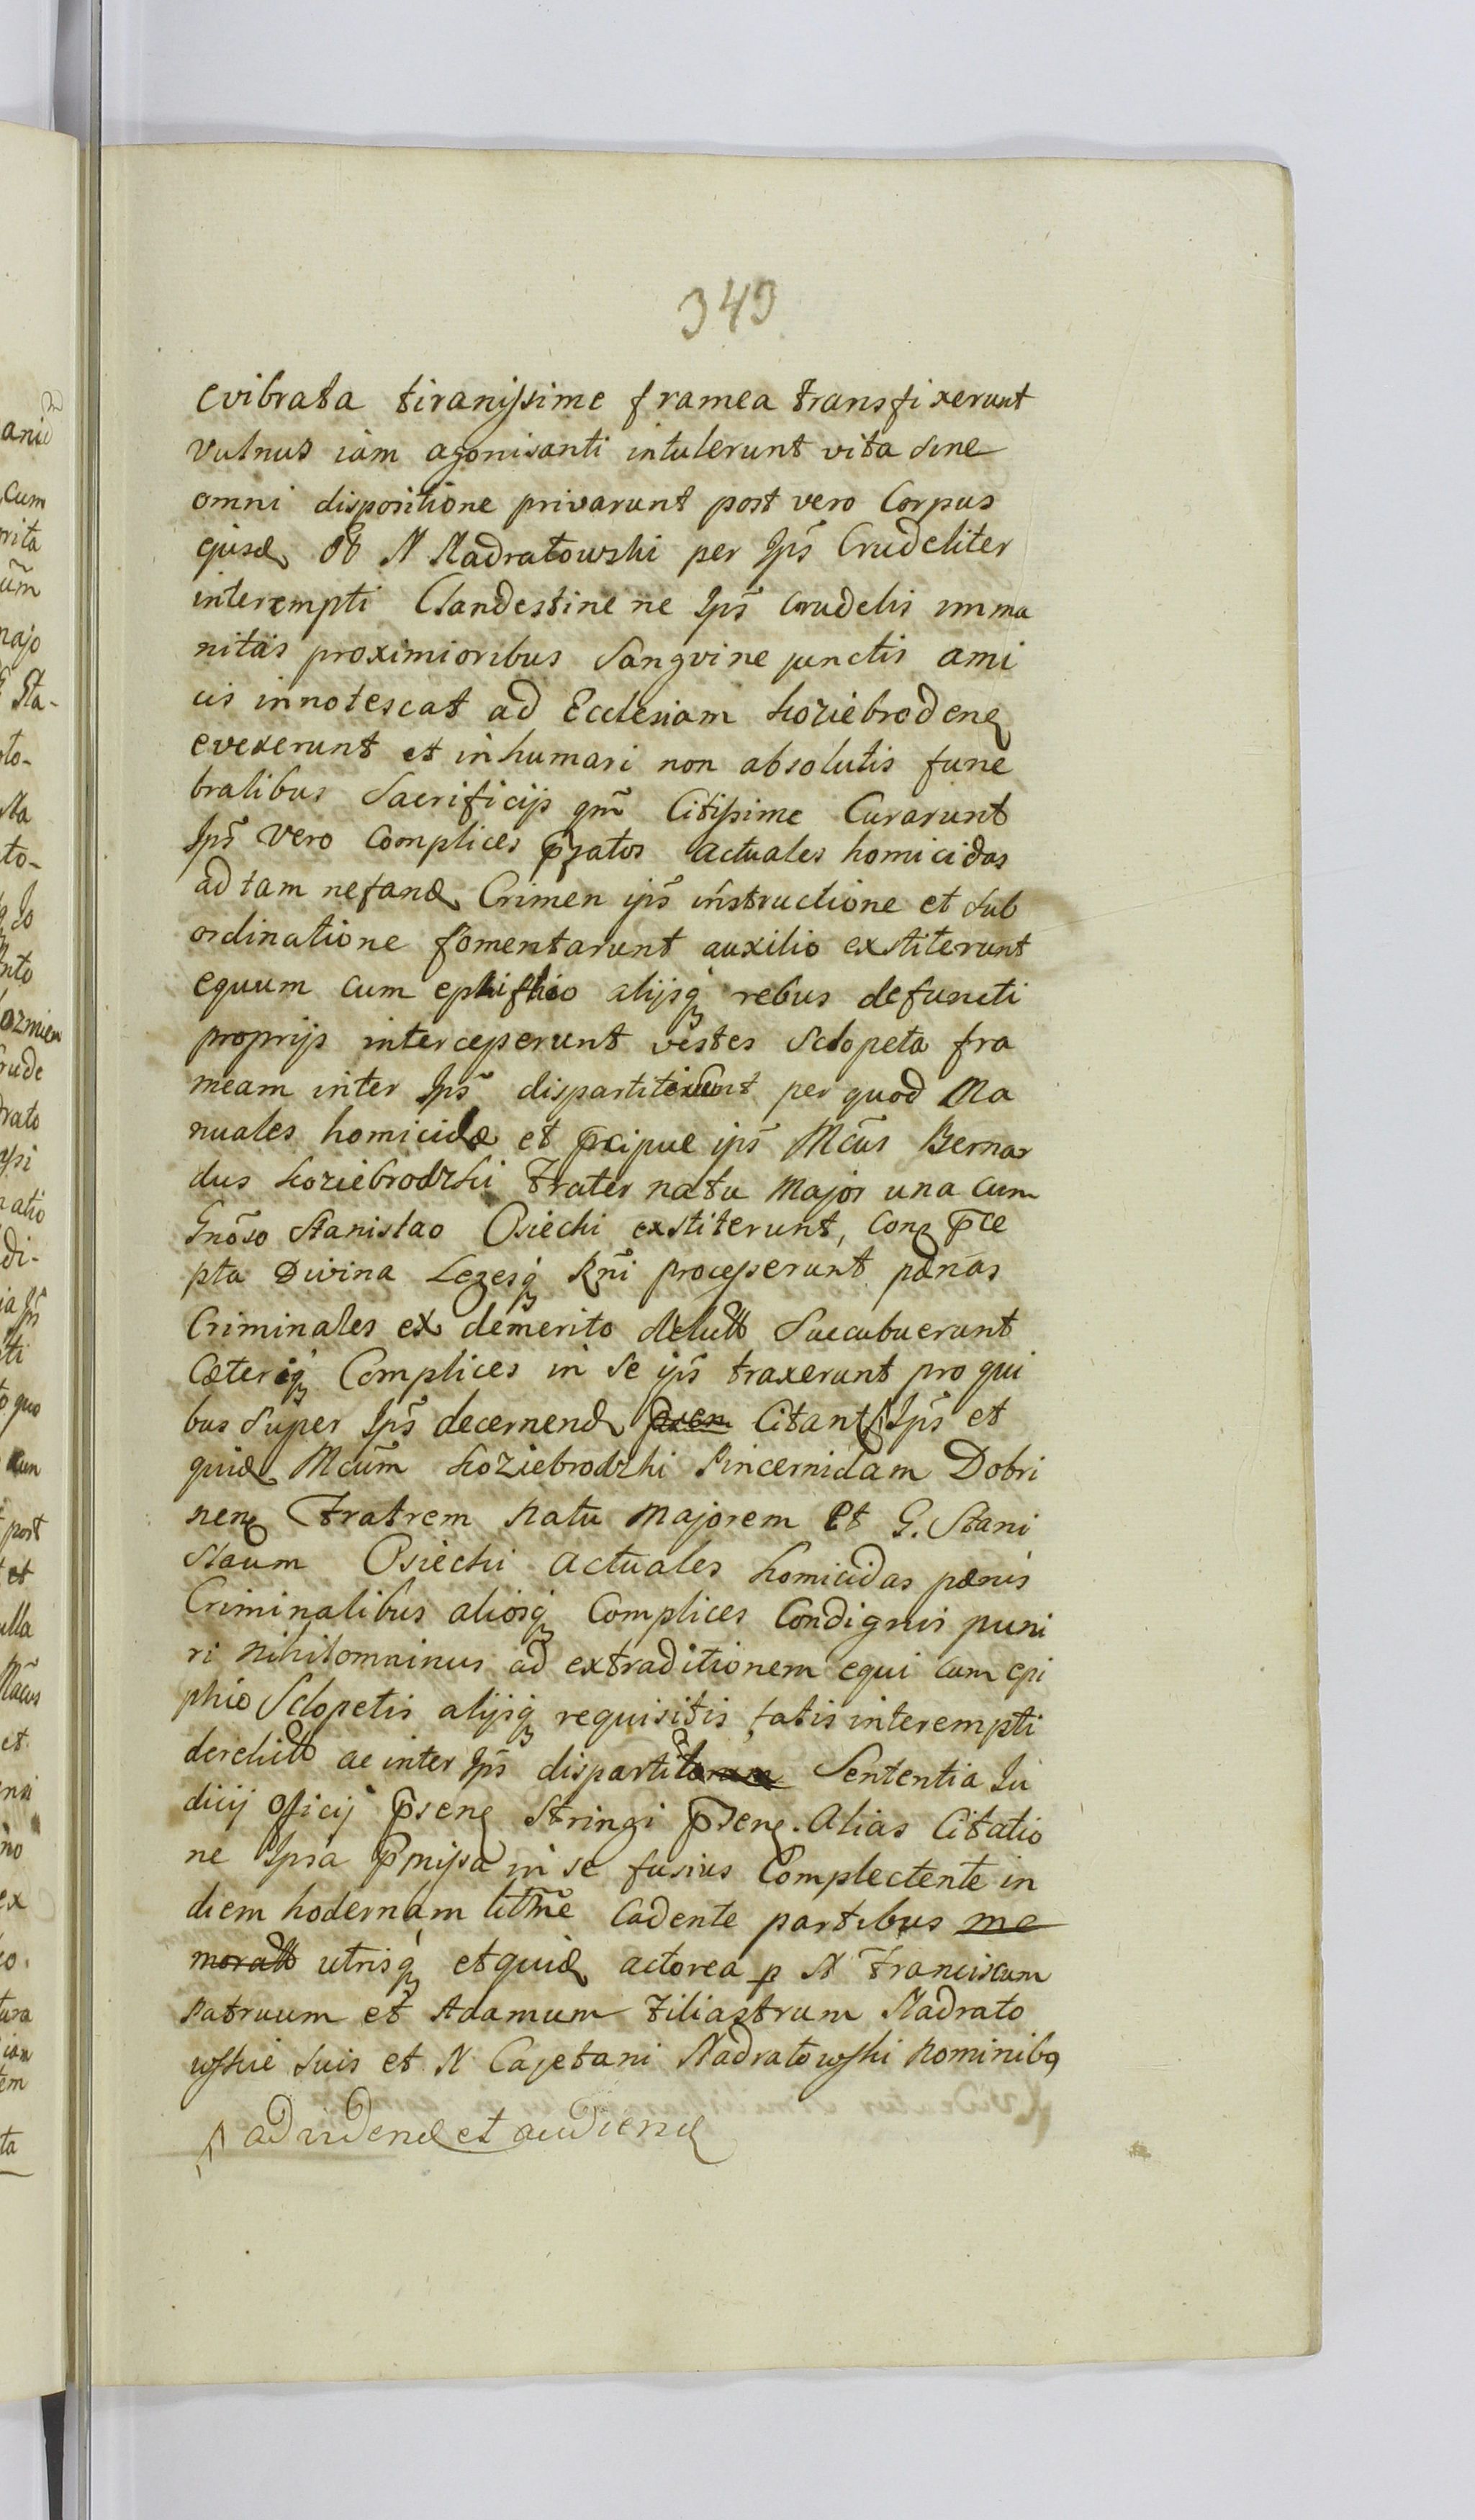 343
evibrata tiranissime framea transfixerunt
vulnus iam agonisanti intulerunt vita sine
omni dispositione privarunt post vero Corpus
ejusd N Nadratowski per Ips̃ Crudeliter
interempti Clandestine ne Ips̃ crudelis imma
nitas proximioribus Sangvine junctis ami
cis innotescat ad Ecclesiam Koziebroden
evexerunt et inhumari non absolutis fune
bralibus Sacrificijs qm̃ Citissime Curarunt
Ips̃ vero Complices p̃fatos actuales homicidas
ad tam nefand Crimen ips̃ instructione et sub
ordinatione fomentarunt auxilio exstiterunt
equum cum ephiphio alijsq rebus defuncti
proprijs interceperunt vestes Sclopeta fra
meam inter Ips̃ dispartiterunt per quod Ma
nuales homicidæ et p̃cipue ips̃ Mcũs Bernar
dus Koziebrodzki Frater natu Major una cum
Gnõso Stanislao Osiecki exstiterunt, con p̃ce
pta Divina Legesq Rñi processerunt pænas
Criminales ex demerito Succubuerunt
Cæteriq Complices in se ips̃ traxerunt pro qui
bus Super Ips̃ decernend Citant Ips̃ et
quid Mcũm Koziebrodzki Pincernidam Dobri
nen Fratrem Natu Majorem et G. Stani
slaum Osiecki actuales homicidas pænis
Criminalibus aliosq Complices Condignis puni
ri nihilominus ad extraditionem equi cum epi
phio Sclopetis alijsq requisitis fatis interempti
derelict ac inter Ips̃ disparti Sententia Ju
dicij officij p̃sen Stringi p̃sen. Alias Citatio
ne Ip̃sa P̃missa in se fusius Complectente in
diem hodernam litm̃e Cadente partibus me
moratt utrisq et quid actorea p N Franciscum
Patruum et Adamum Filiastrum Nadrato
wskie suis et N Cajetani Nadratowski Nominibq
ad videnđ et audienđ